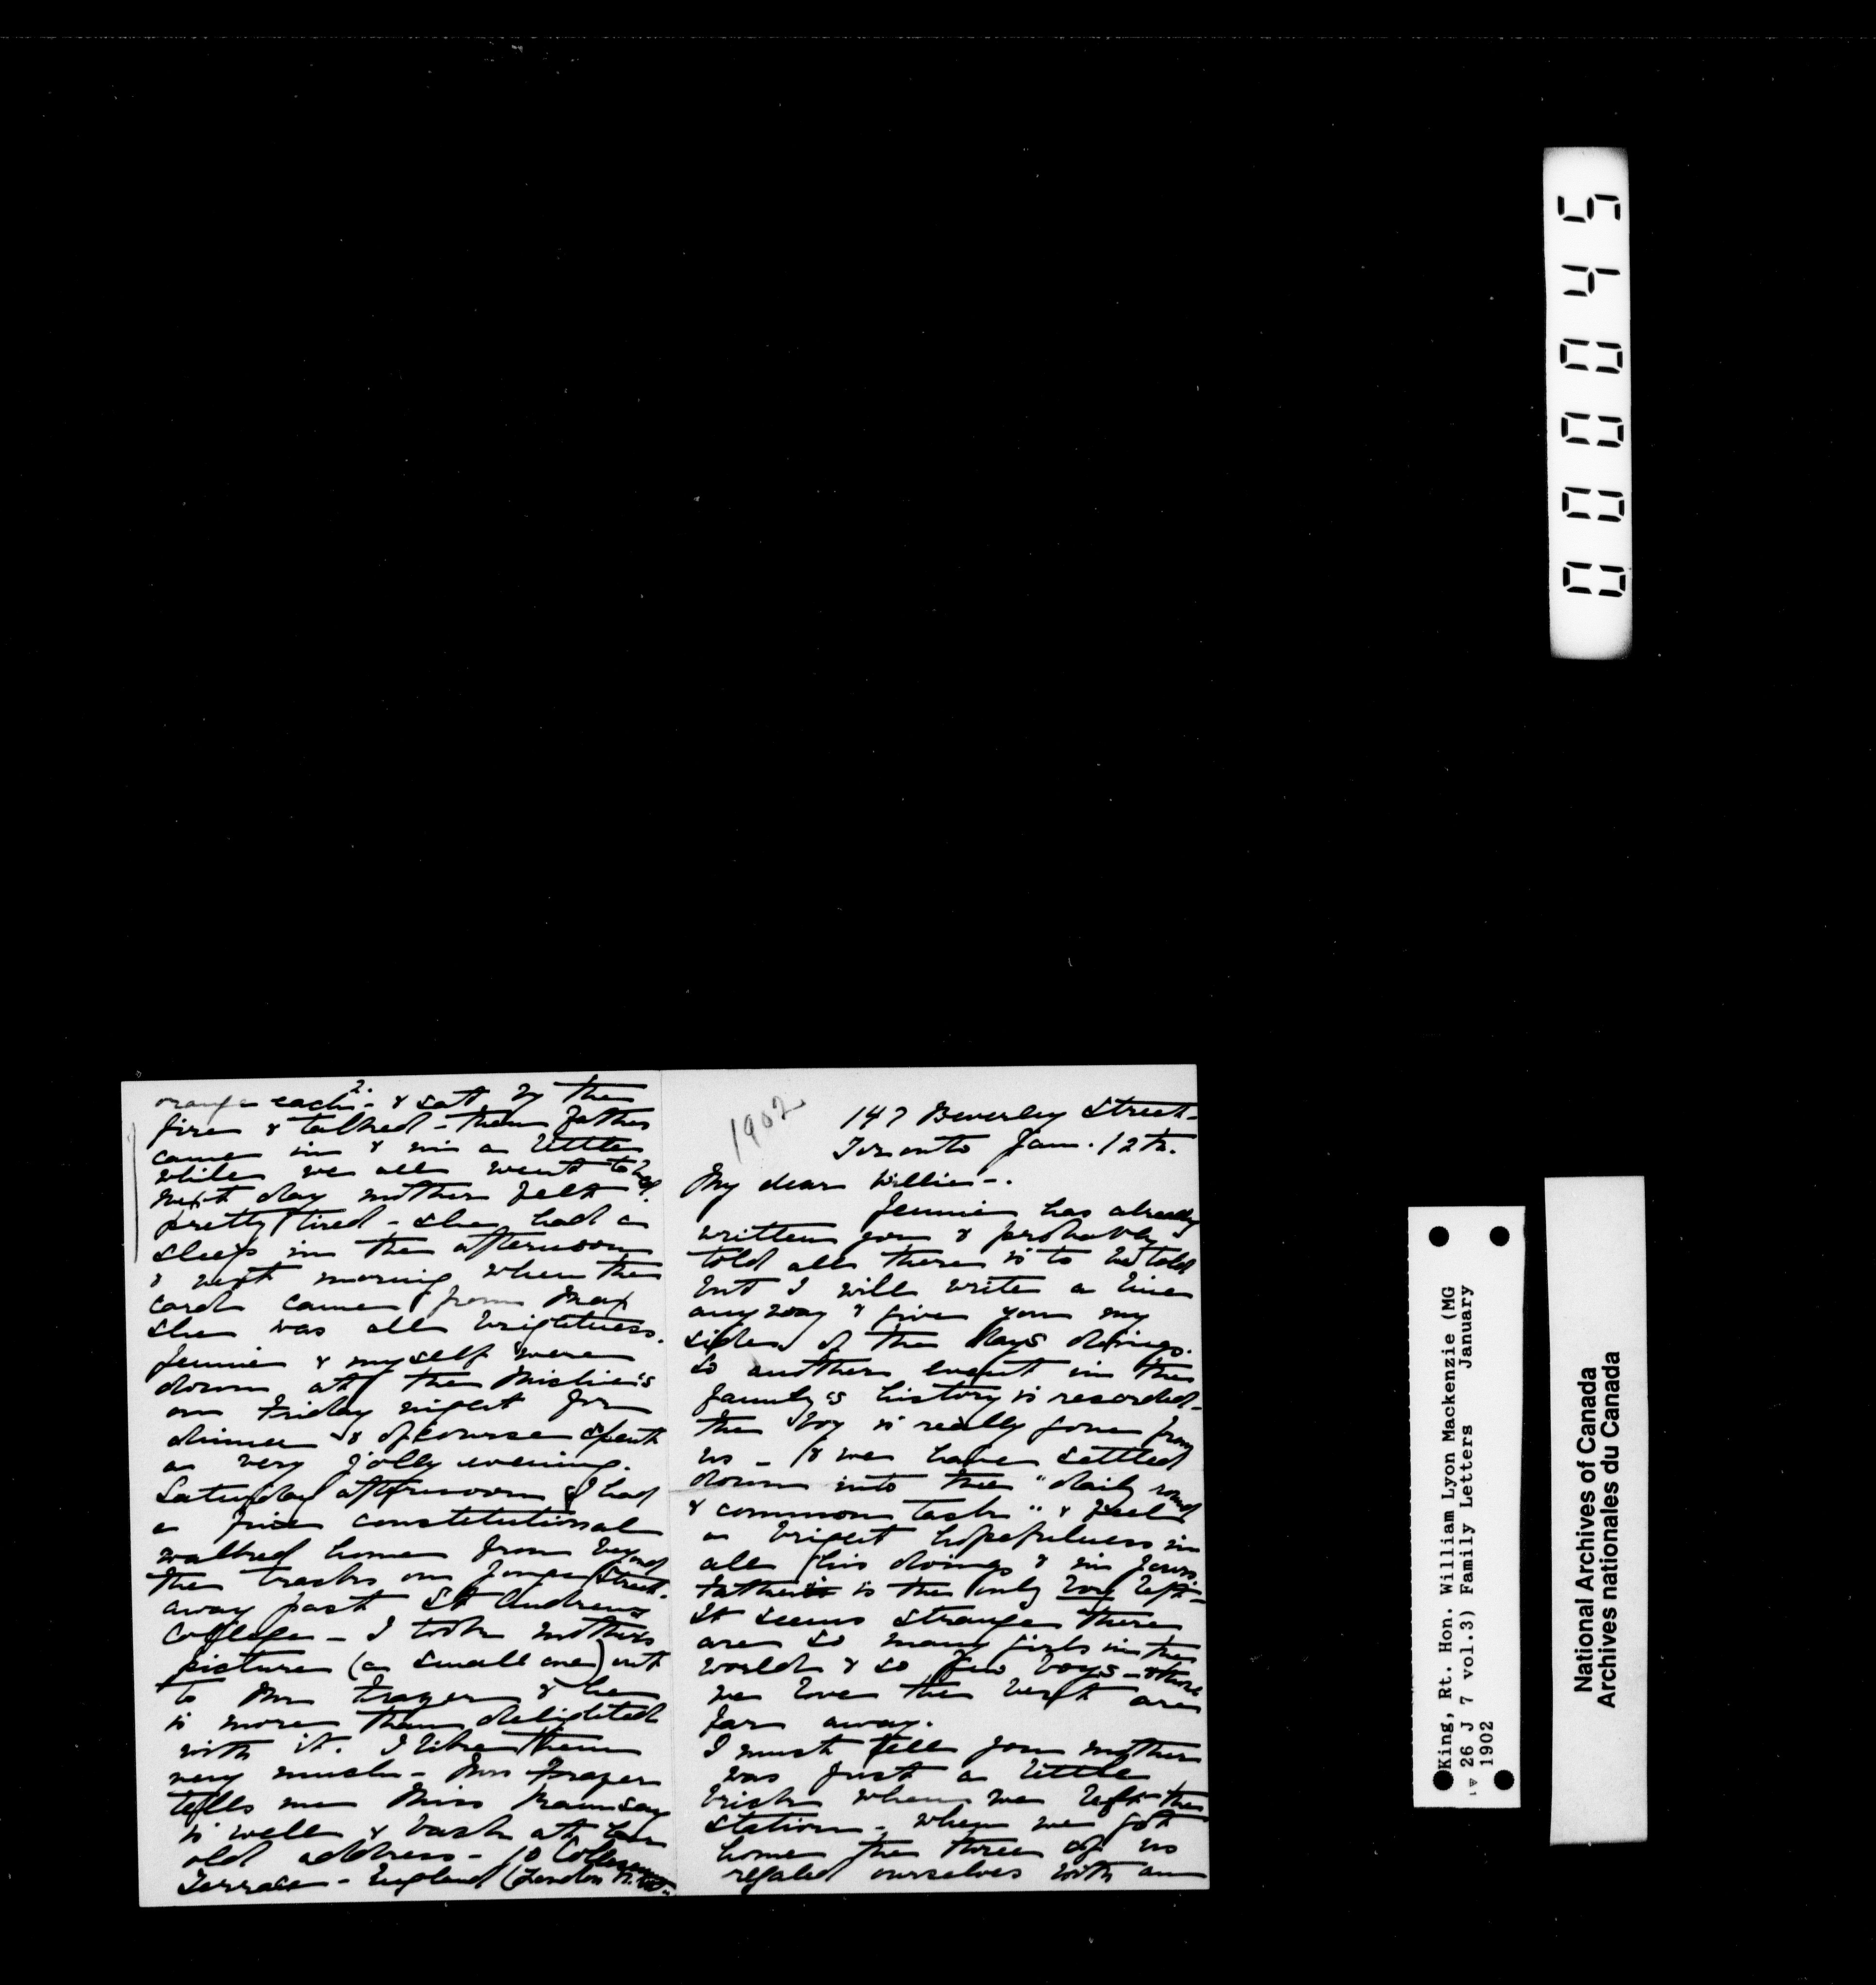 1902
147 Beverley Street -
Toronto Jan. 12th.
My dear Willie -.
Jennie has already
written you & probably
told all there is to be told
but I will write a line
anyway & give you my
side of the days doings.
So another event in the
family's history is recorded -
the boy is really gone from
us - & we have settled
down into the "daily round
& common task" & feel
a bright hopefulness in
all his doings & in yours.
Father is the only boy left -
It seems strange there
are so many girls in the
world & so few boys - & those
we love the best are
far away.
I must tell you mother
was just a little
brick when we left the
station - when we got
home the three of us
regaled ourselves with an
2.
orange each - & sat by the
fire & talked - then father
came in & in a little
while we all went to bed.
Next day mother felt
pretty tired - she had a
sleep in the afternoon
& next morning when the
card came from Max
she was all brightness.
Jennie & myself were
down at the Mickle's
on Friday night for
dinner & of course spent
a very jolly evening.
Saturday afternoon I had
a fine constitutional
walked home from beyond
the tracks on Yonge Street.
away past St Andrew's
College - I took mother's
picture (a small one) out
to Mr Frazer & he
is more than delighted
with it. I like them
very much - Mrs Frazer
tells me Miss Ramsay
is well & back at her
old address - 10 Colosseum
Terrace - England (London N.W.
0000445
King, Rt. Hon. William Lyon Mackenzie (MG
26 J 7 vol.3) Family Letters January
1902
National Archives of Canada
Archives nationales du Canada